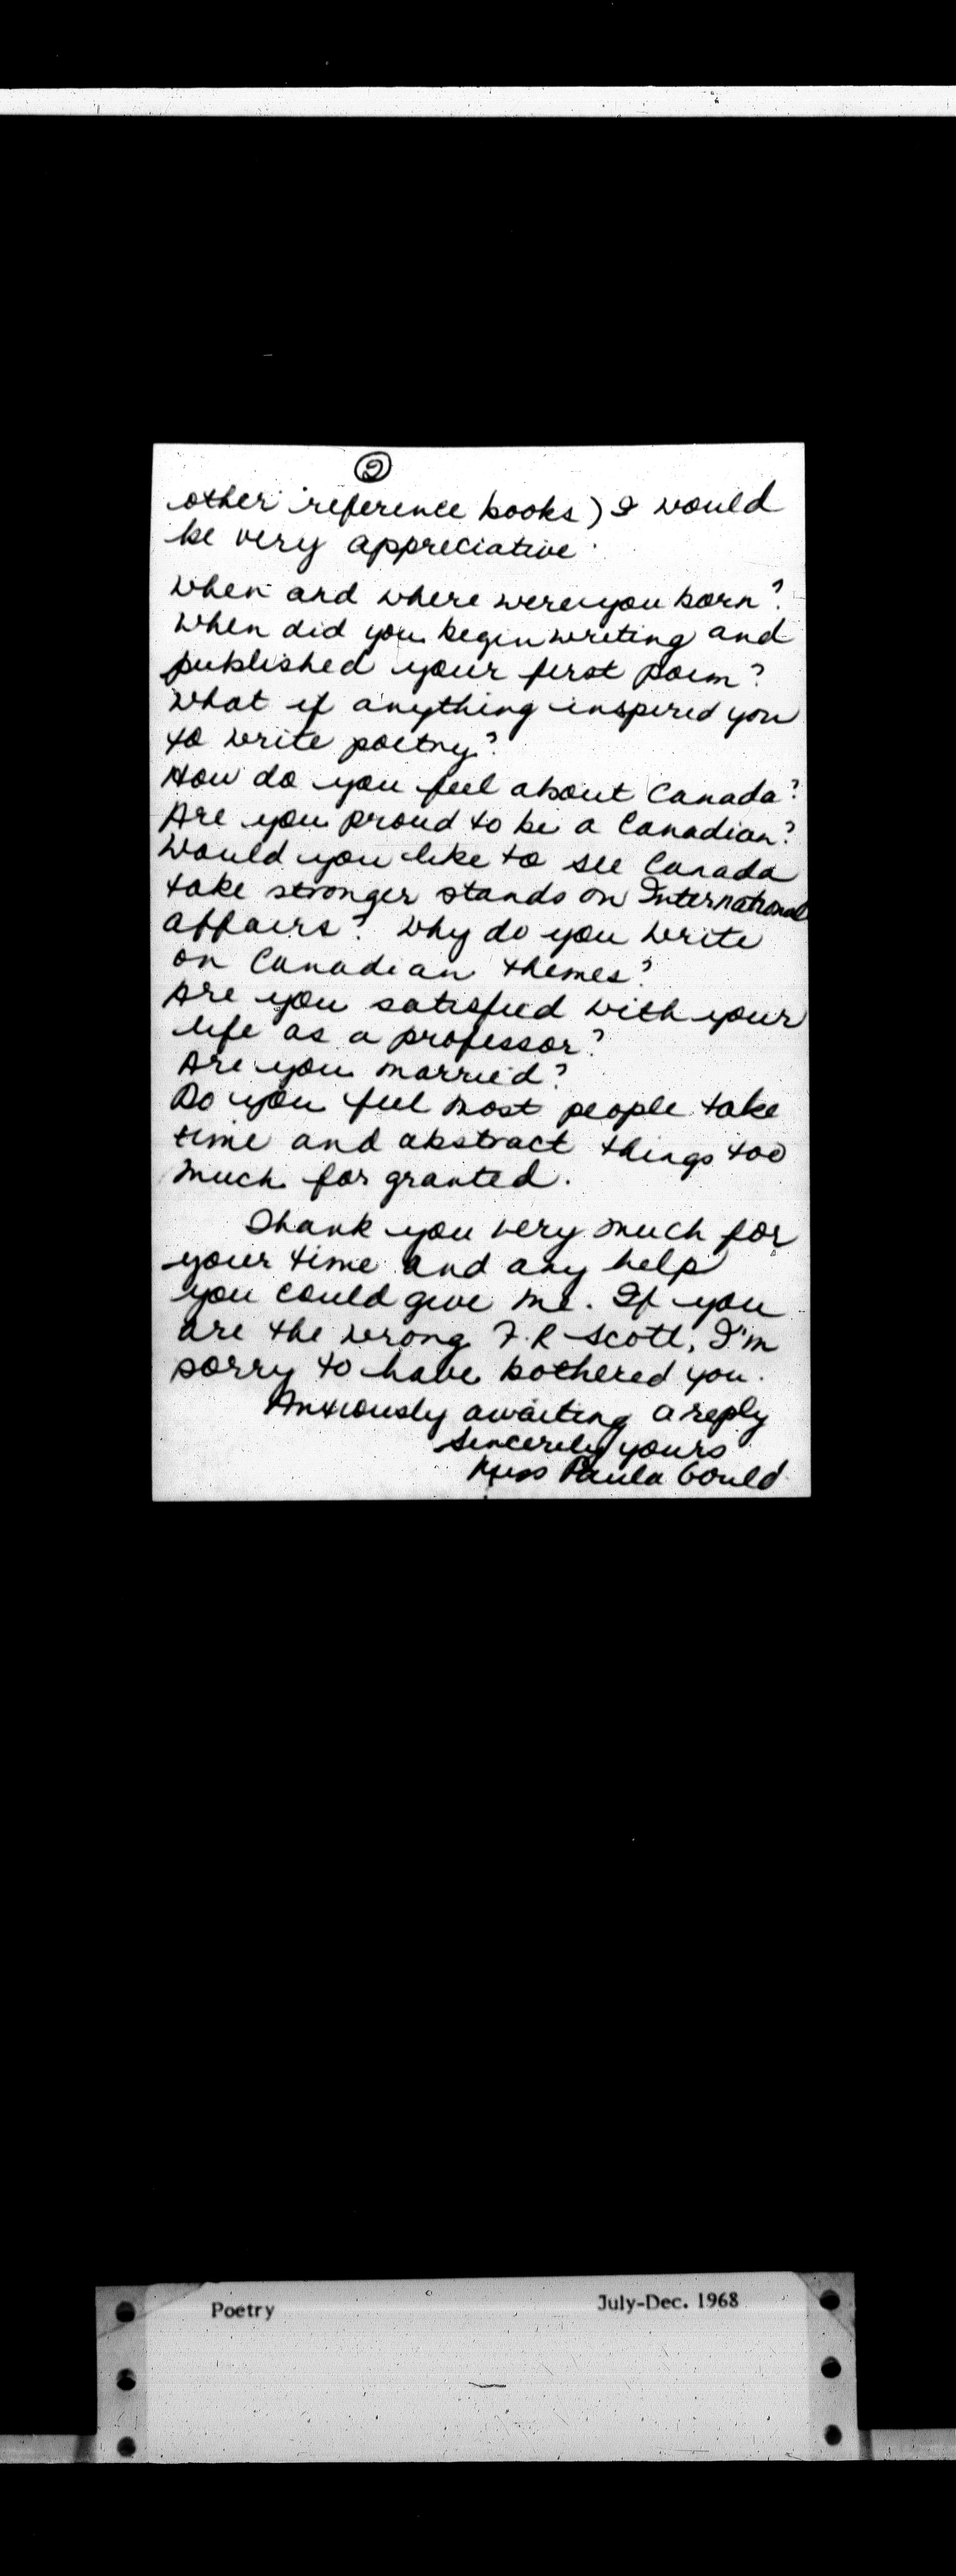 2
other reference books) I would
be very appreciative.
When and where were you born?
When did you begin writing and
published your first poem?
What if anything inspired you
to write poetry?
How do you feel about Canada?
Are you proud to be a Canadian?
Would you like to see Canada
take stronger stands on International
affairs? Why do you write
on Canadian themes?
Are you satisfied with your
life as a professor?
Are you married?
Do you feel most people take
time and abstract things too
much for granted.
Thank you very much for
your time and any help
you could give me. If you
are the wrong F.R Scott, I'm
sorry to have bothered you.
Anxiously awaiting a reply
Sincerely yours
Miss Paula Gould
Poetry July-Dec. 1968